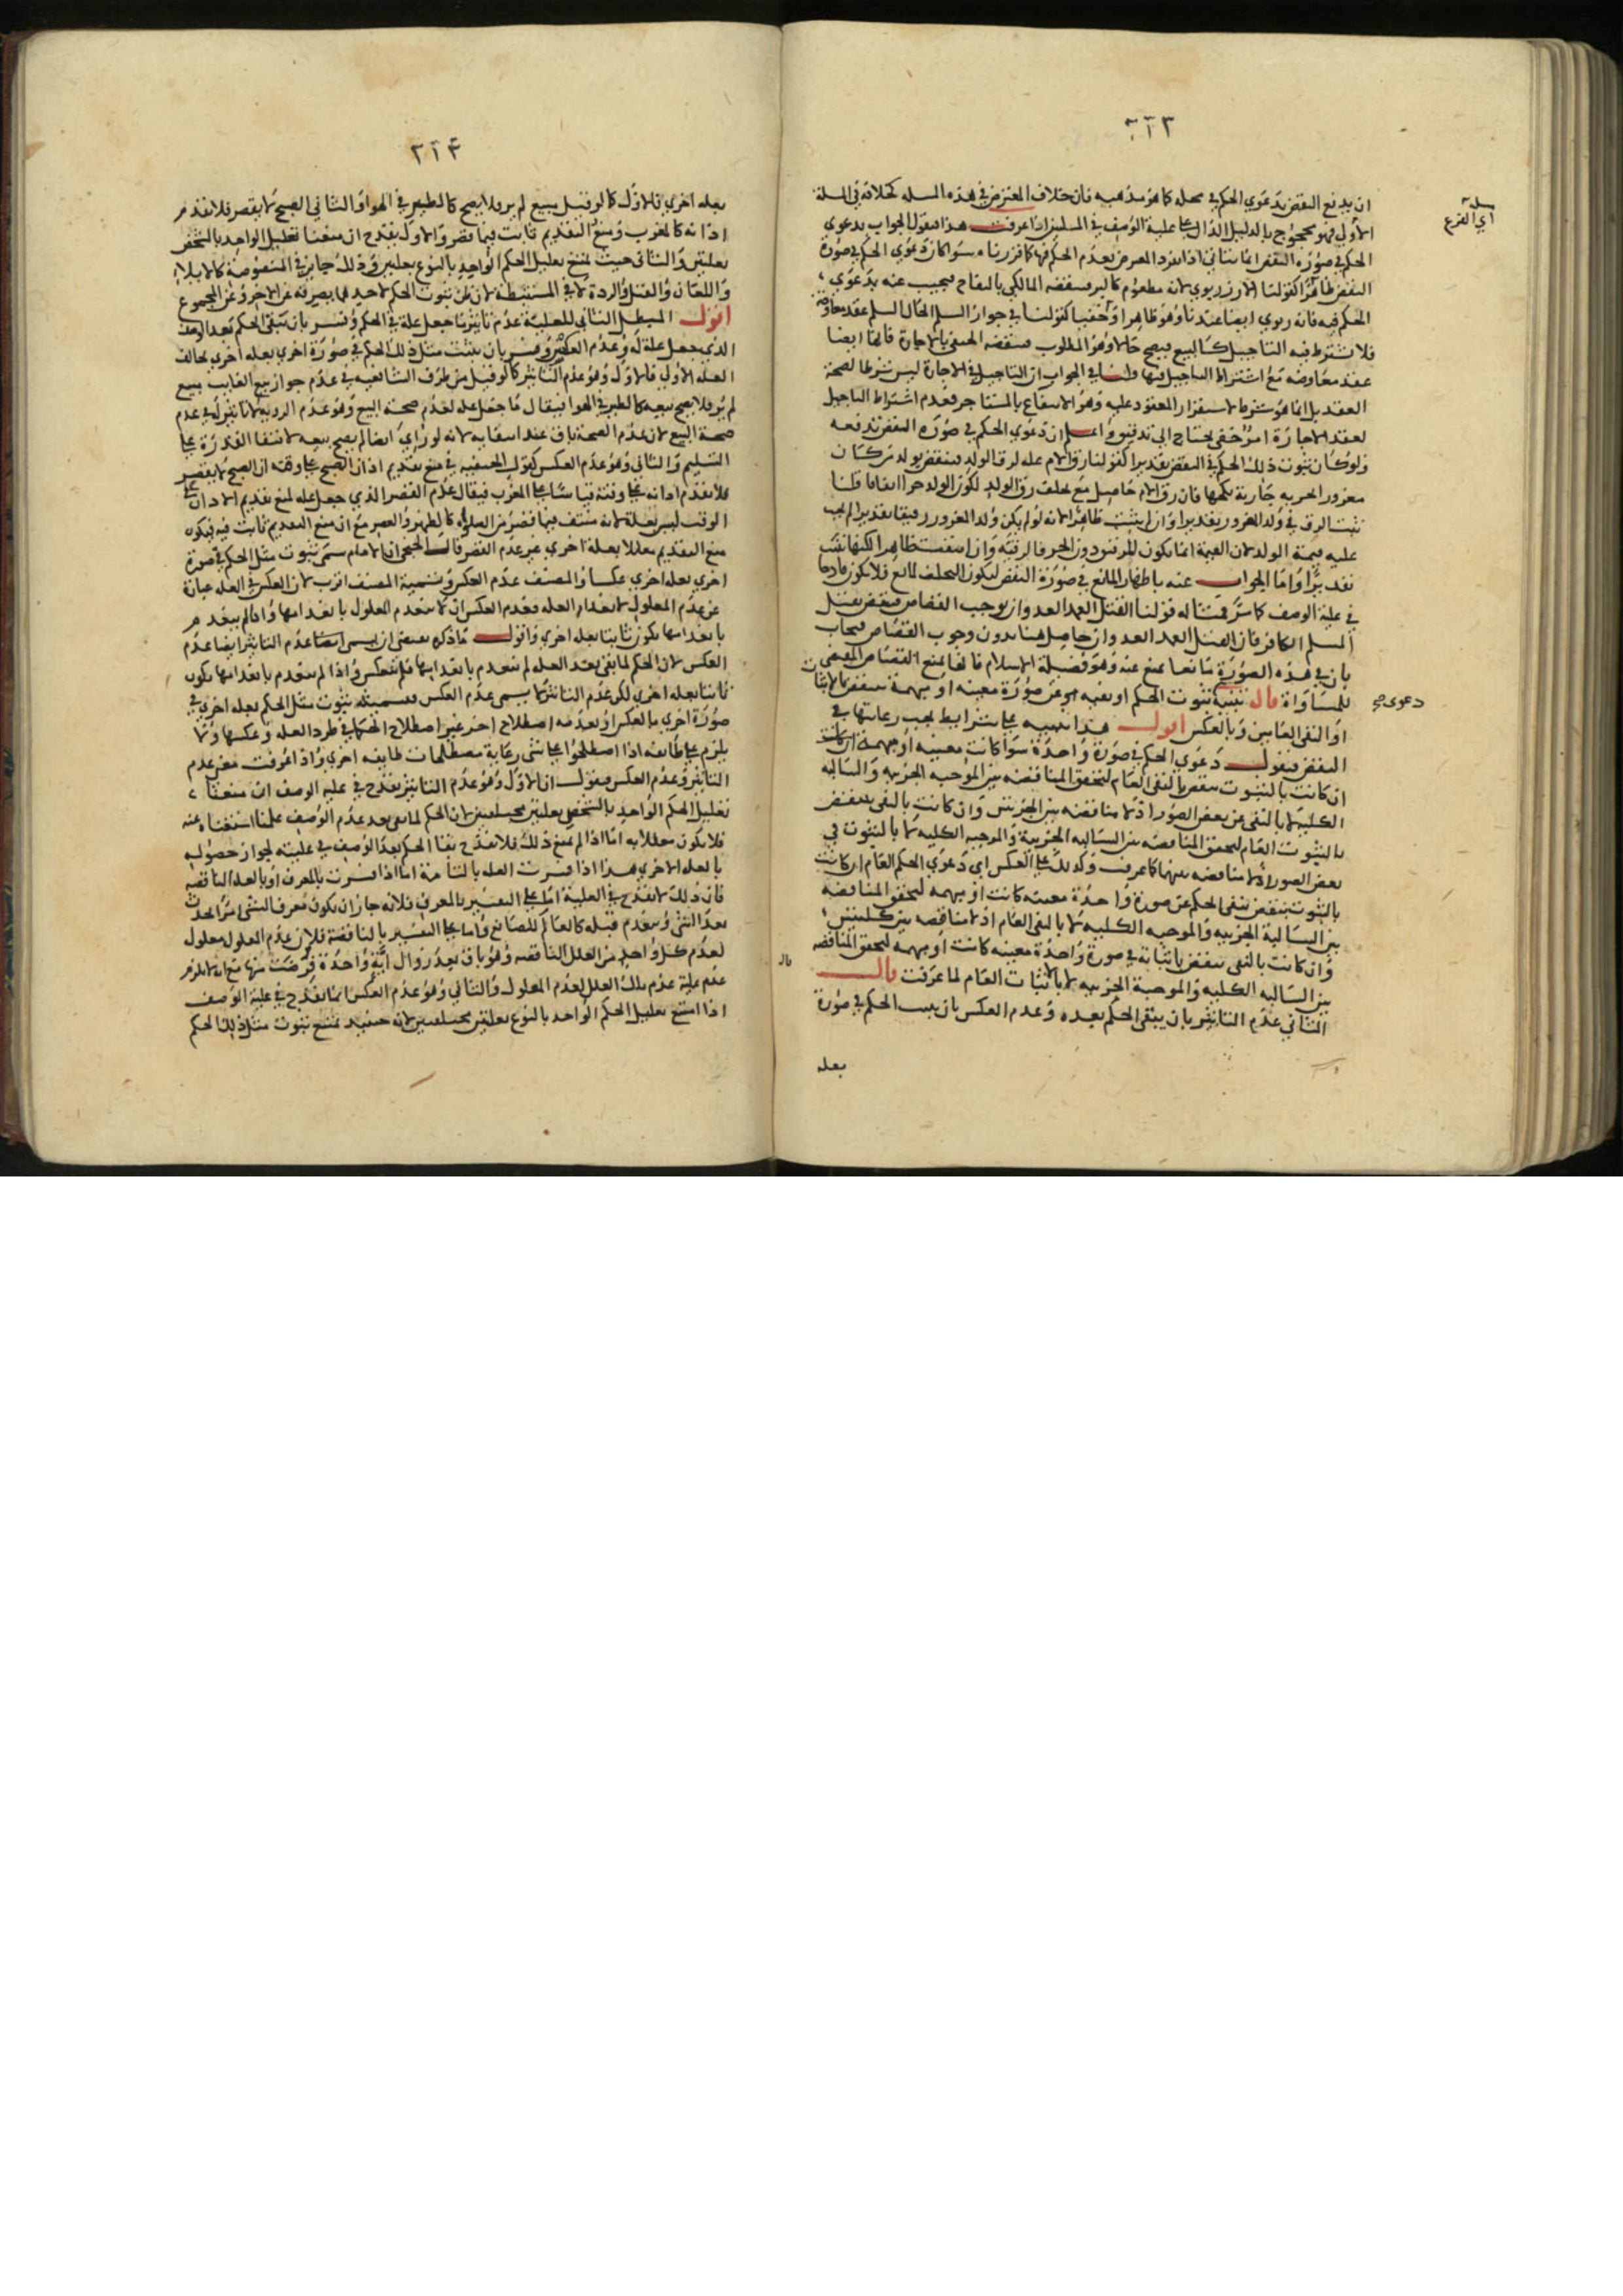 ٢١٣
ان يدفع النقض بدعوي الحكم في محله كما هو مذهبه فان خلاف المعترض في هذه المسله كخلافه في المسلة
مسلة
اي الفرع
الاولي فهو محجوج بالدليل الدال علي علية الوصف في المسلتين اذا عرفت هذا فنقول الجواب بدعوي
الحكم في صورة النقض انما يتاتي اذا لم يرد المعترض بعدم الحكم فيها كما قررناه سوا كان دعوي الحكم في صورة
النقض ظاهرا كقولنا الارز ربوي لانه مطعوم كالبر فينقضه المالكي بالتفاح فيجيب عنه بدعوي
الحكم فيه فانه ربوي ايضا عندنا وهو ظاهر او خفيا كقولنا في جواز السلم الحال السلم عقد معاوضة
فلا يشترط فيه التاجيل كالبيع فيصح حالا وهو المطلوب فينقضه الحنفي بالاجارة فانها ايضا
عقد معاوضه مع اشتراط التاجيل فيها قلنا في الجواب ان التاجيل في الاجارة ليس شرطا لصحة
العقد بل انما هو شرط لاستقرار المعقود عليه وهو الانتفاع بالمستاجر فعدم اشتراط التاجيل
لعقد الاجارة امر خفي يحتاج الي تدقيق واعلم ان دعوي الحكم في صورة النقض تدفعه
ولو كان ثبوت ذلك الحكم في النقض تقديرا كقولنا رق الام علة لرق الولد فينقض بولد من كان
مغرور الحريه جارية نكحها فان رق الام حاصل مع تخلف رق الولد لكون الولد حرا اتفاقا قلنا
ثبت الرق في ولد المغرور تقديرا وان لم يثبت ظاهرا لانه لو لم يكن ولد المغرور رقيقا تقديرا لم يجب
عليه قيمة الولد لان القيمة انما يكون للرقيق دون الحر فالرقية وان انتفت ظاهرا لكنها تثبت
تقديرا واما الجواب عنه باظهار المانع في صورة النقض ليكون التخلف لمانع فلا يكون قادحا
في علية الوصف كما مر فمثاله قولنا القتل العمد العدوان يوجب القصاص فينقض بقتل
المسلم الكافر فان القتل العمد العدوان حاصل هنا بدون وجوب القصاص فيجاب
بان في هذه الصورة مانعا يمنع عنه وهو فضيلة الاسلام فانها تمنع القصاص المقتضي
للمساواة قال تنبيه ثبوت الحكم او نفيه في صورة معينه او مبهمة ينتقض بالاثبات
دعوي صح
او النفي العامين وبالعكس اقول هذا تنبيه علي شرايط يجب رعايتها في
النقض فنقول دعوي الحكم في صورة واحدة سوا كانت معينه او مبهمه ان كانت
ان كانت بالثبوت ينتقض بالنفي العام لتحقق المناقضه بين الموجبه الجزييه والسالبه
الكليه لا بالنفي عن بعض الصور اذ لا مناقضه بين الجزيتين وان كانت بالنفي ينتقض
بالثبوت العام لتحقق المناقضه بين السالبه الجزيية والموجبه الكليه لا بالثبوت في
بعض الصور اذ لا مناقضه بينهما كما عرفت وكذلك علي العكس اي دعوي الحكم العام ان كانت
بالثبوت ينتقض بنفي الحكم عن صورة واحدة معينه كانت او مبهمه لتحقق المناقضه
بين السالبة الجزييه والموجبه الكليه لا بالنفي العام اذ لا مناقضه بين كليتين
وان كانت بالنفي ينتقض باثباته في صورة واحدة معينه كانت او مبهمه لتحقق المناقضه
بين السالبه الكليه والموجبة الجزييه لا بالاثبات العام لما عرفت قال
قال
الثاني عدم التاثير بان يبقي الحكم بعده وعدم العكس بان يثبت الحكم في صورة
بعله
٢١٤
بعله اخري فالاول كما لو قيل مبيع لم يره فلا يصح كالطير في الهوا والثاني الصبح لا يقصر فلا يقدم
اذانه كالمغرب ومنع التقديم ثابت فيما قصر والاول يقدح ان منعنا تعليل الواحد بالشخص
بعلتين والثاني حيث يمتنع تعليل الحكم الواحد بالنوع بعلتين وذلك جايز في المنصوصة كالايلاء
واللعان والقتل والردة لا في المستنبطة لان ظن ثبوت الحكم لاحدهما يصرفه عن الاخر وعن المجموع
اقول المبطل الثاني للعلية عدم تاثير ما جعل علة في الحكم وفسر بان يبقي الحكم بعد الوصف
الذي جعل علة له وعدم العكس وفسر بان يثبت مثل ذلك الحكم في صورة اخري بعله اخري تخالف
العله الاولي فالاول وهو عدم التاثير كما لو قيل من طرف الشافعيه في عدم جواز بيع الغايب مبيع
لم يره فلا يصح بيعه كالطير في الهوا فيقال ما جعل علة لعدم صحة البيع وهو عدم الروية لا تاثير له في عدم
صحة البيع لان عدم الصحة باق عند انتفايه لانه لو راي ايضا لم يصح بيعه لانتفا القدرة علي
التسليم والثاني وهو عدم العكس كقول الحنفيه في منع تقديم اذان الصبح علي وقته ان الصبح لا يقصر
فلا يقدم اذانه علي وقته قياسا علي المغرب فيقال عدم القصر الذي جعل علة لمنع تقديم الاذان علي
الوقت ليس بعلة لانه منتف فيما قصر من الصلوة كالظهر والعصر مع ان منع التقديم ثابت فيه فيكون
منع التقديم معللا بعلة اخري غير عدم القصر قال الخنجي ان الامام سمي ثبوت مثل الحكم في صورة
اخري بعله اخري عكسا والمصنف عدم العكس وتسمية المصنف اقرب لان العكس في العله عبارة
عن عدم المعلول لانعدام العله فعدم العكس ان لا ينعدم المعلول بانعدامها واذا لم ينعدم
بانعدامها يكون ثابتا بعله اخري واقول ما ذكره يقتضي ان يسمي ايضا عدم التاثير ايضا عدم
العكس لان الحكم لما بقي بعد العله لم ينعدم بانعدامها فلم ينعكس واذا لم ينعدم بانعدامها يكون
ثابتا بعله اخري لكن عدم التاثير لا يسمي عدم العكس فتسميته ثبوت مثل الحكم بعله اخري في
صورة اخري بالعكس او بعدمه اصطلاح اخر غير اصطلاح الحكما في طرد العله وعكسها ولا
يلزم علي طايفه اذا اصطلحوا علي شي رعاية مصطلحات طايفه اخري واذا عرفت معني عدم
التاثير وعدم العكس فنقول ان الاول وهو عدم التاثير يقدح في علية الوصف ان منعنا
تعليل الحكم الواحد بالشخص بعلتين مختلفتين لان الحكم لما بقي بعد عدم الوصف علمنا استغناه عنه
فلا يكون معللا به اما اذا لم نمنع ذلك فلا يقدح بقا الحكم بعد الوصف في عليته لجواز حصوله
بالعله الاخري هذا اذا فسرت العله بالتامة اما اذا فسرت بالمعرف او بالعلة الناقصه
فان ذلك لا يقدح في العلية اما علي التفسير بالمعرف فلانه جاز ان يكون معرف الشي امرا يحدث
بعد الشي وينعدم قبله كالعالم للصانع واما علي التفسير بالناقصة فلان عدم المعلول معلول
لعدم كل واحد من العلل الناقصه وهو باق بعد زوال اية واحدة فرضت منها مع انه لا يلزم
عدم علية عدم تلك العلل لعدم المعلول والثاني وهو عدم العكس انما يقدح في علية الوصف
اذا امتنع تعليل الحكم الواحد بالنوع بعلتين مختلفتين لانه حينيد يمتنع ثبوت مثل ذلك الحكم